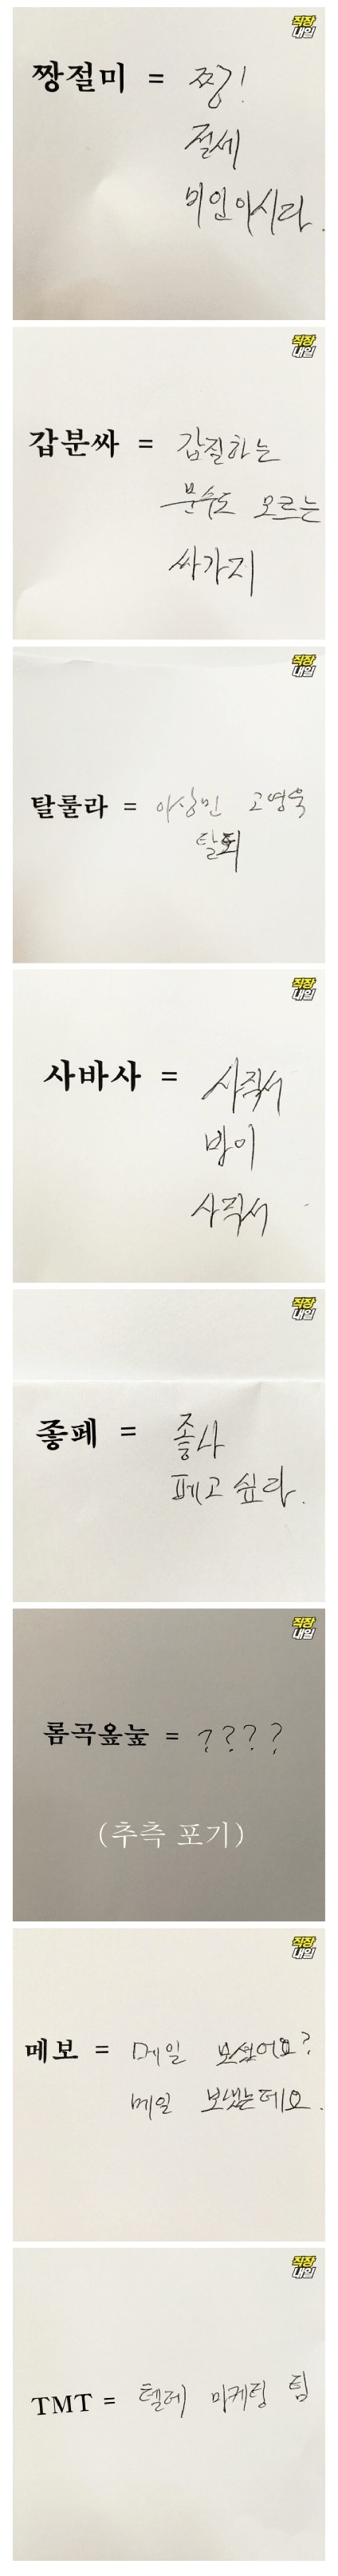 직장
내일
짱절미 = 짱!
절세
미인이시라.
직장
내일
갑분싸 = 갑질하는
분수도 모르는
싸가지
직장
내일
탈룰라 = 이상민 고영욱
탈퇴
직장
내일
사바사 = 사직서
받이
사직서
직장
내일
좋페 = 좋나
페고 싶다.
직장
내일
롬곡옾눞 = ????
(추측 포기)
직장
내일
메보 = 메일 보셨어요?
메일 보냈는데요.
직장
내일
TMT = 텔레 마케팅 팀